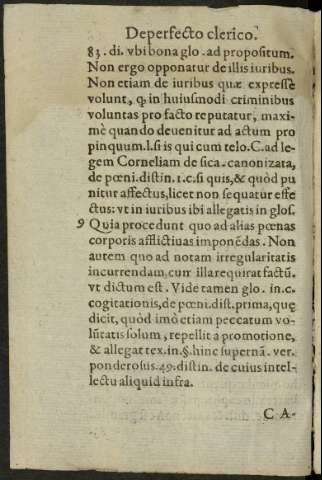 De perfecto clerico.
83. di. vbi bona glo. ad propositum.
Non ergo opponatur de illis iuribus.
Non etiam de iuribus quæ expressè
volunt, ꝙ in huiusmodi criminibus
voluntas pro facto reputatur, maxi-
mè quando deuenitur ad actum pro
pinquum. l. si is qui cum telo. C. ad le-
gem Corneliam de sica. canonizata,
de pœni. distin. 1. c. si quis, & quòd pu
nitur affectus, licet non sequatur effe
ctus: vt in iuribus ibi allegatis in glos.
9 Quia procedunt quo ad alias pœnas
corporis afflictiuas imponẽdas. Non
autem quo ad notam irregularitatis
incurrendam, cum illa requirat factũ.
vt dictum est. Vide tamen glo. in. c.
cogitationis, de pœni. dist. prima, quę
dicit, quòd imò etiam peccatum vo-
lũtatis solum, repellit a promotione,
& allegat tex. in. §. hinc supernã. ver.
ponderosus. 49. distin. de cuius intel-
lectu aliquid infra.
C A-